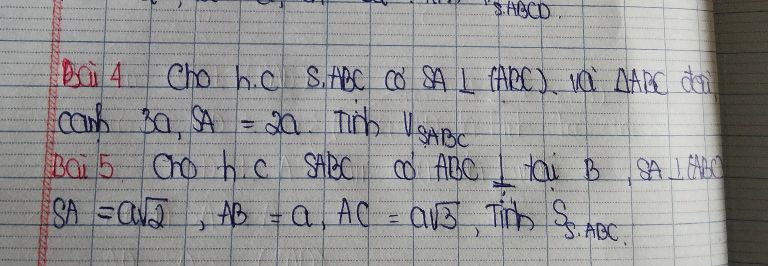 S.ABCD.
Bài 4 Cho h.c S.ABC có SA ⊥ (ABC). và ΔABC đều
cạnh 3a, SA = 2a. Tính V_SABC
Bài 5 Cho h.c SABC có ABC ⊥ tại B, SA ⊥ (ABC)
SA = a√2, AB = a, AC = a√3, Tính S_S.ABC.